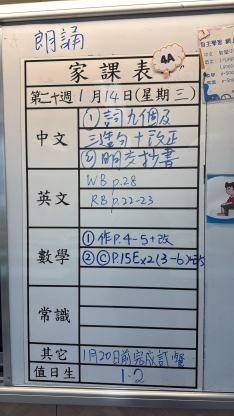 朗誦
家課表
4A
第二十週 1月14日(星期三)
中文
① 詞九個及
三造句+改正
② 明交抄書
英文
WB p.28
RB p.22-23
數學
① 作P.4-5+改
② Ⓒ P.15 Ex2(3-6)+改
常識
其它
1月20日前完成計
值日生
1.2
自主學習